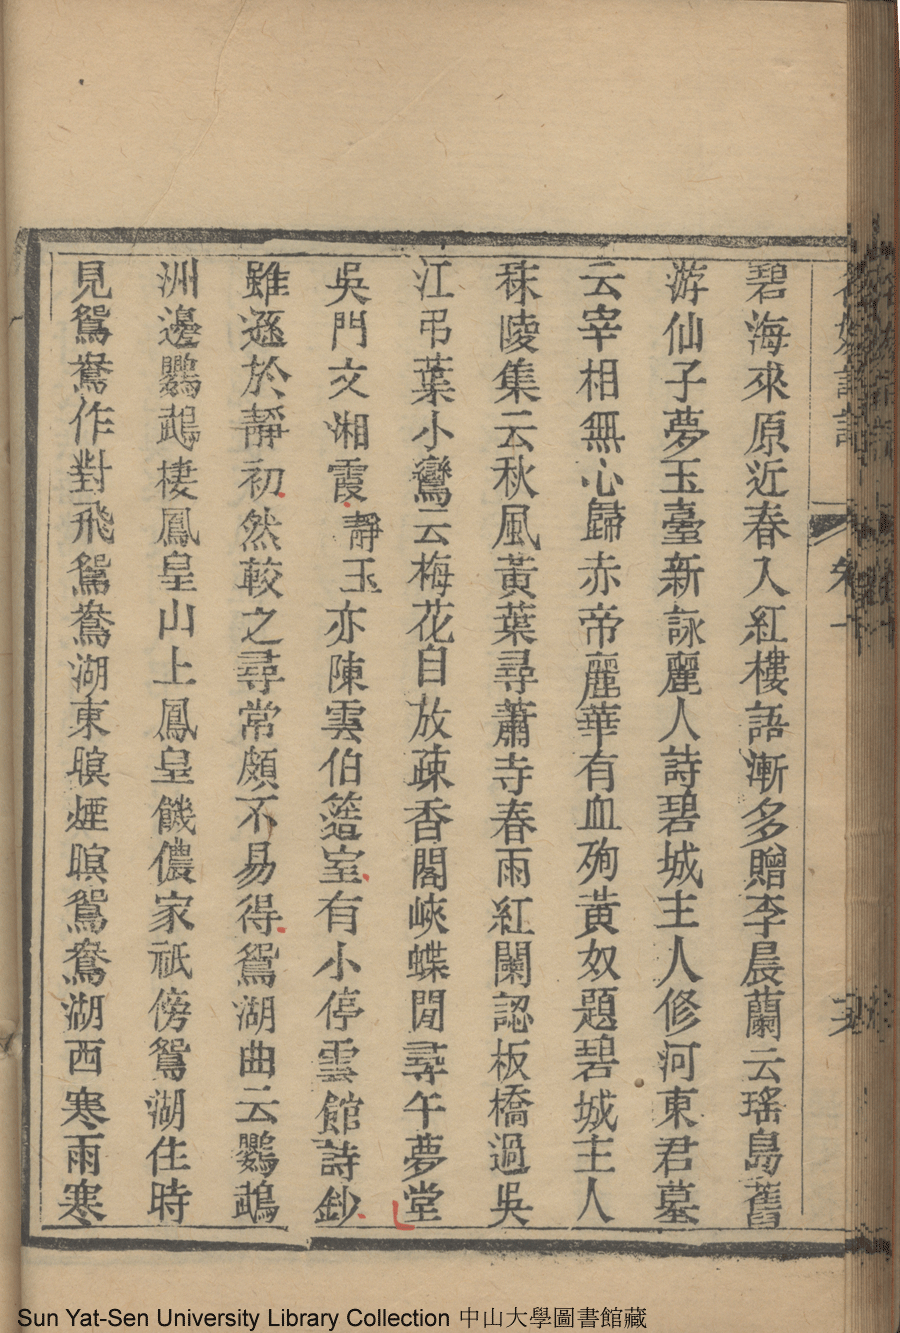 碧海來原近春入紅樓語漸多贈李晨蘭云瑤島舊
游仙子夢玉臺新詠麗人詩碧城主人修河東君墓
云宰相無心歸赤帝麗華有血殉黃奴題碧城主人
秣陵集云秋風黃葉尋蕭寺春雨紅闌認板橋過吳
江弔葉小鸞云梅花自放疎香閣峽蝶閒尋午夢堂
吳門文湘霞靜玉亦陳雲伯簉室有小停雲館詩鈔
雖遜於靜初然較之尋常頗不易得鴛湖曲云鸚鵡
洲邊鸚鵡棲鳳皇山上鳳皇饑儂家祇傍鴛湖住時
見鴛鴦作對飛鴛鴦湖東暝煙暝鴛鴦湖西寒雨寒
Sun Yat-Sen University Library Collection 中山大學圖書館藏